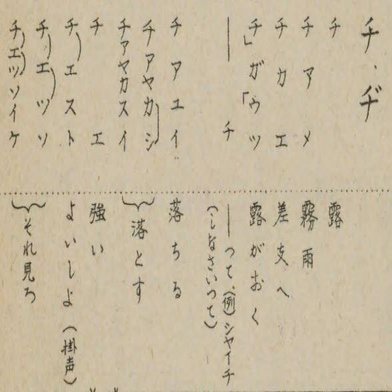 チ、ヂ
チ 露
チアメ 霧雨
チカエ 差支へ
チ」ガ「ウツ 露がおく
――チ ――って、(例)シヤイチ
(しなさいって)
チアユイ 落ちる
チアヤカシ
チアヤカスイ 落とす
チエ 強い
チエスト よいしよ(掛声)
チエツソ
チエツソイケ それ見ろ